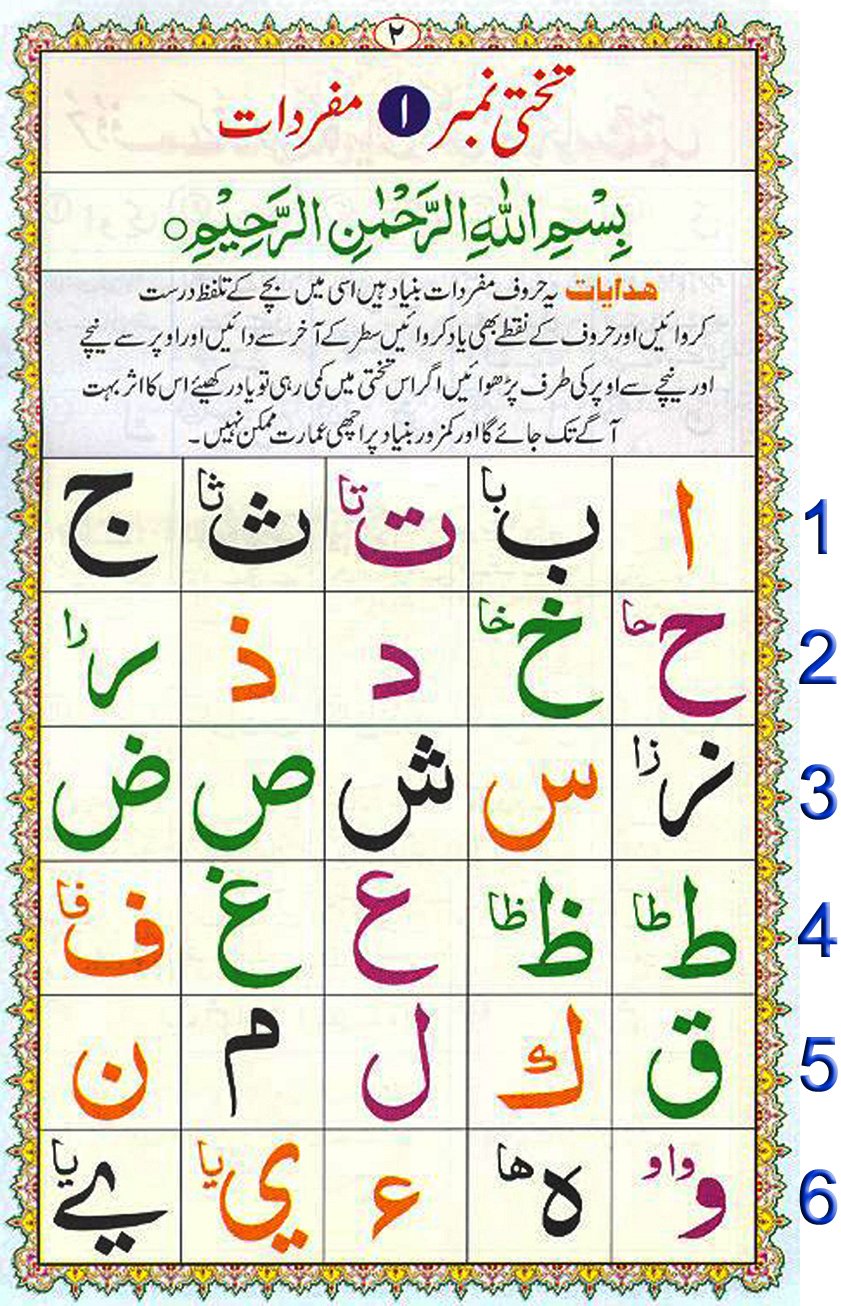 ٢
تختی نمبر ١ مفردات
بِسْمِ اللهِ الرَّحْمٰنِ الرَّحِيْمِ○
ھدایات یہ حروف مفردات بنیاد ہیں اسی میں بچے کے تلفظ درست
کروائیں اور حروف کے نقطے بھی یاد کروائیں سطر کے آخر سے دائیں اور اوپر سے نیچے
اور نیچے سے اوپر کی طرف پڑھوائیں اگر اس تختی میں کمی رہی تو یاد رکھیئے اس کا اثر بہت
آگے تک جائے گا اور کمزور بنیاد پر اچھی عمارت ممکن نہیں۔
ا ب با ت تا ث ثا ج 1
ح حا خ خا د ذ ر را 2
ز زا س ش ص ض 3
ط طا ظ ظا ع غ ف فا 4
ق ك ل م ن 5
و واو ه ها ء ي يا ے يا 6